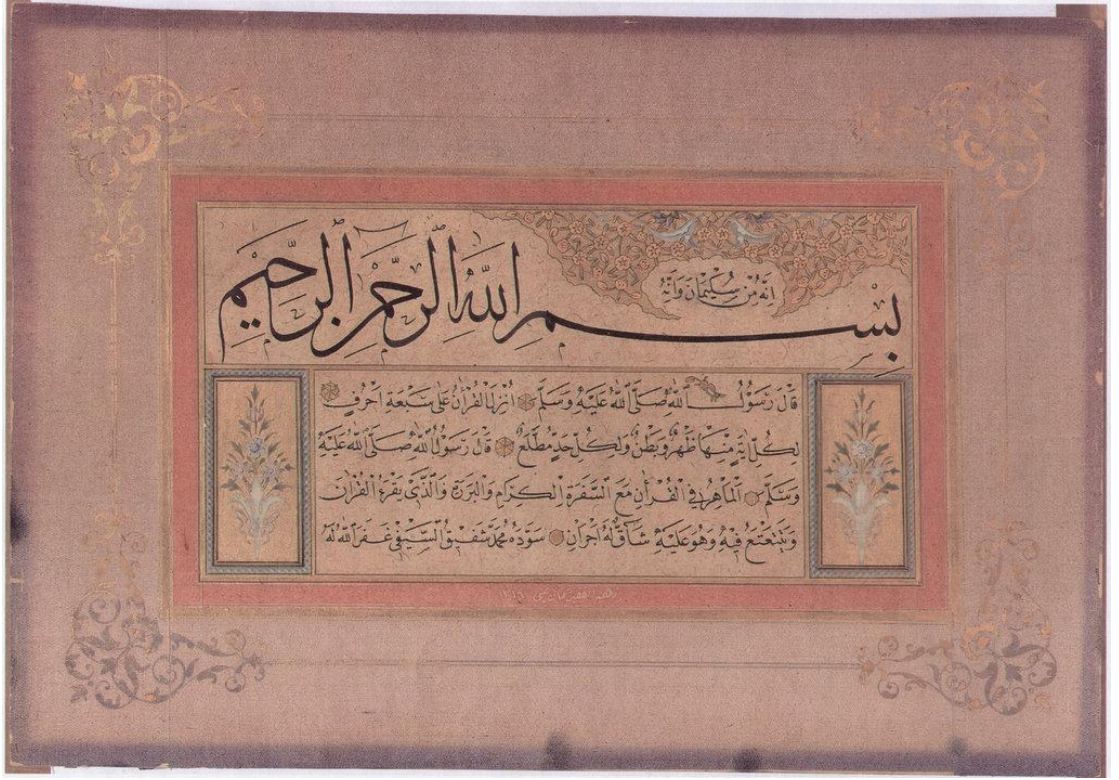 انه من سليمان وانه
بسم الله الرحمن الرحيم
قال رسول الله صلى الله عليه وسلم انزل القرآن على سبعة احرف
لكل اية منها ظهر وبطن ولكل حد مطلع قال رسول الله صلى الله عليه
وسلم الماهر في القرآن مع السفرة الكرام والبررة والذي يقرء القرآن
ويتتعتع فيه وهو عليه شاق له اجران سوده محمد شفيق السيفي غفر الله له